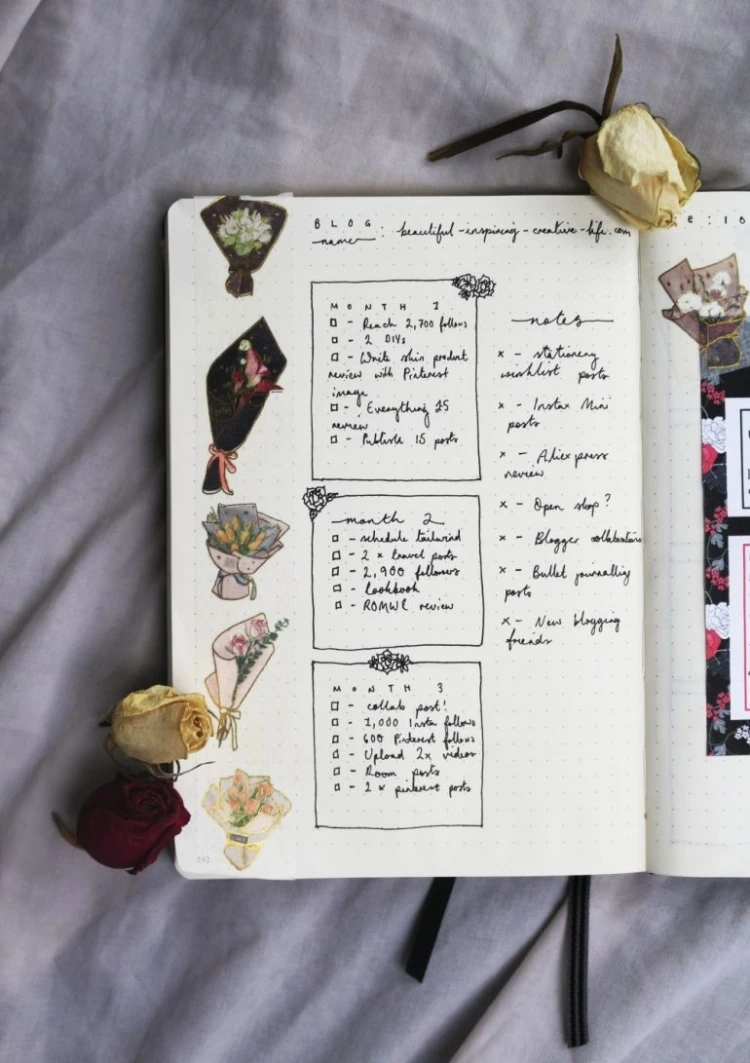 BLOG
name : beautiful-inspiring-creative-life.com
MONTH 1
- Reach 2,700 follows
- 2 DIYs
- Write skin product
review with Pinterest
image
- Everything £5
review
- Publish 15 posts
month 2
- schedule tailwind
- 2 x travel posts
- 2,900 followers
- Lookbook
- ROMWE review
MONTH 3
- collab post!
- 1,000 Insta follows
- 600 Pinterest follows
- Upload 2x videos
- Room posts
- 2 x pinterest posts
notes
x - stationery
wishlist posts
x - Instax Mini
posts
x - Aliexpress
review
x - Open shop?
x - Blogger collaborations
x - Bullet journalling
posts
x - New blogging
friends
242